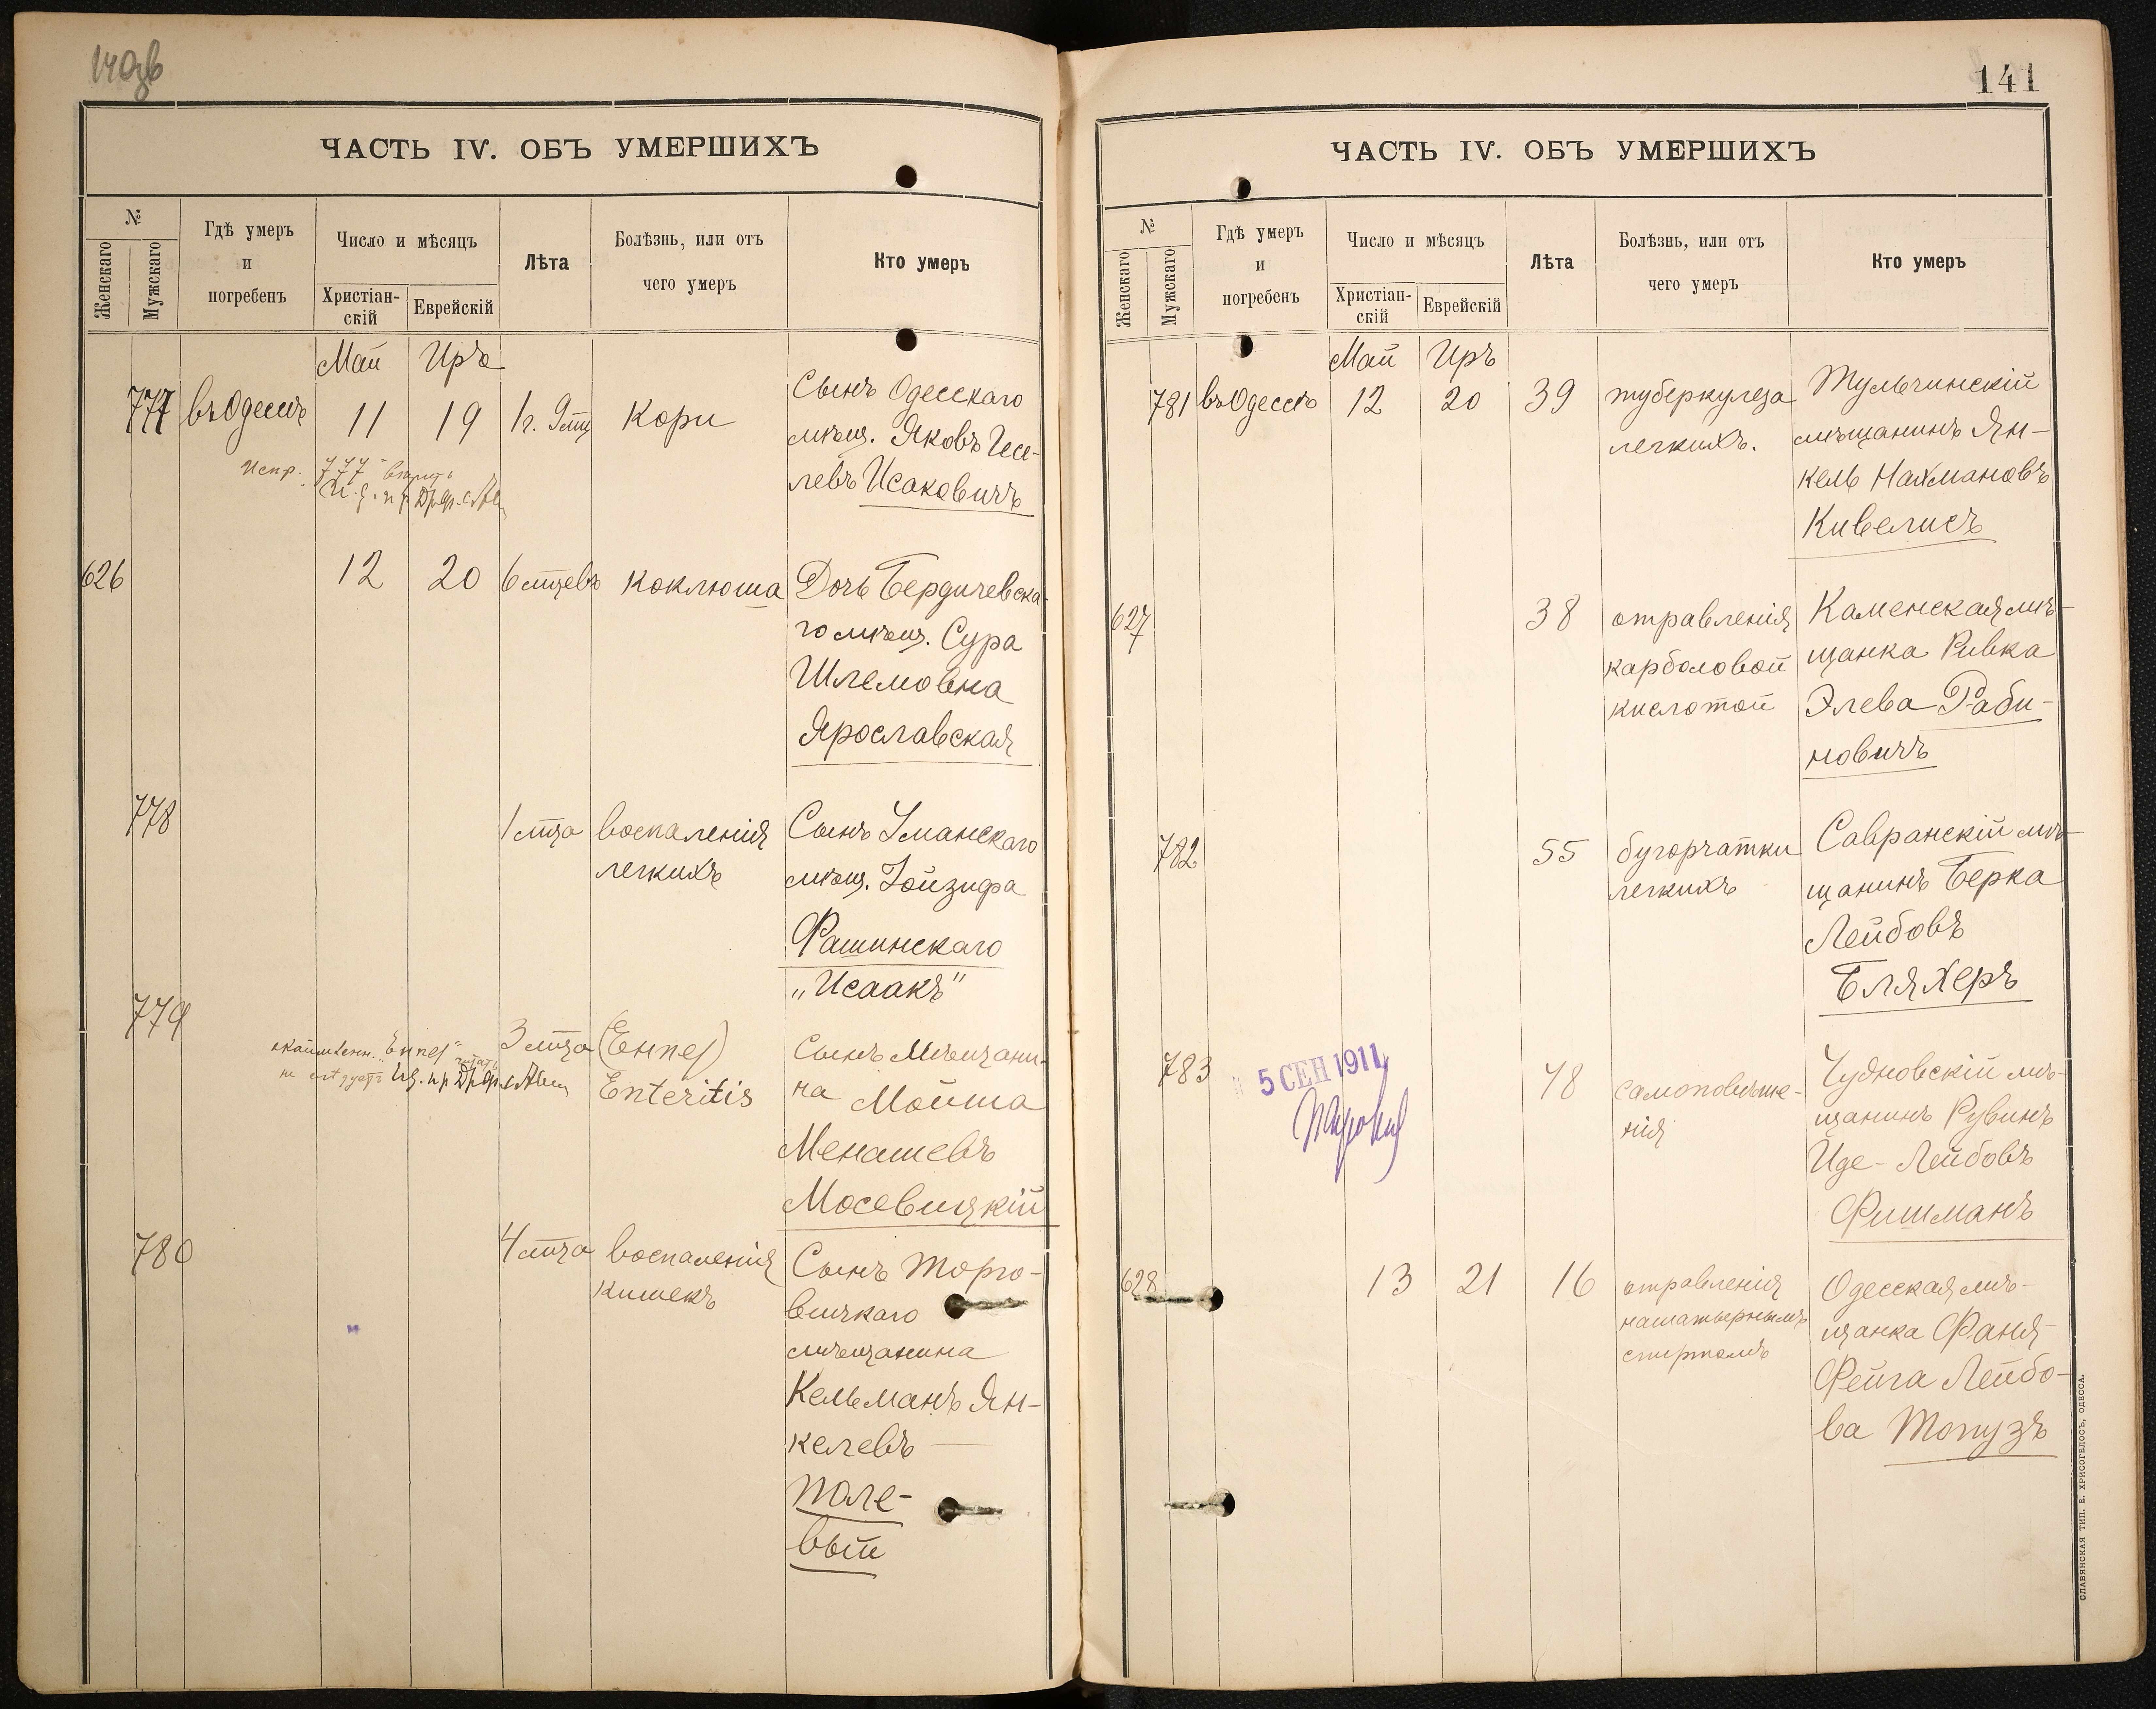 ЧАСТЬ IV. ОБЪ УМЕРШИХЪ
№
Женскаго
Мужскаго
Гдѣ умеръ
и
погребенъ
Число и мѣсяцъ
Христіан-
скій
Еврейскій
Лѣта
Болѣзнь, или отъ
чего умеръ
Кто умеръ
Май Иръ
777 въ Одессѣ 11 19 1 г. 9 мц Кори
Сынъ Одесскаго
мѣщ. Яковъ Гесе-
левъ Исаковичъ
Испр. "777"
626 12 20 6 мцевъ Коклюша
Дочь Бердичевска-
го мѣщ. Сура
Шлемовна
Ярославская
778 1 мца воспаленія
легкихъ
Сынъ Уманскаго
мѣщ. Іойзифа
Рашинскаго
"Исаакъ"
779 3 мца (Енпеј)
Enteritis
Сынъ Мѣщани-
на Мойша
Менашевъ
Мосевицкій
780 4 мца воспаленія
кишекъ
Сынъ Торго-
вицкаго
мѣщанина
Кельманъ Ян-
келевъ
Поле-
вый
141
ЧАСТЬ IV. ОБЪ УМЕРШИХЪ
№
Женскаго
Мужскаго
Гдѣ умеръ
и
погребенъ
Число и мѣсяцъ
Христіан-
скій
Еврейскій
Лѣта
Болѣзнь, или отъ
чего умеръ
Кто умеръ
Май Иръ
781 въ Одессѣ 12 20 39 туберкулеза
легкихъ.
Тульчинскій
мѣщанинъ Ян-
кель Нахмановъ
Кивелисъ
627 38 отравленія
карболовой
кислотой
Каменская мѣ-
щанка Ривка
Элева Раби-
новичъ
782 55 бугорчатки
легкихъ
Савранскій мѣ-
щанинъ Берка
Лейбовъ
Бляхеръ
783 48 самоповѣше-
нія
5 СЕН 1911
Чудновскій мѣ-
щанинъ Рувинъ
Иде-Лейбовъ
Фишманъ
628 13 21 16 отравленія
нашатырнымъ
спиртомъ
Одесская мѣ-
щанка Фаня-
Фейга Лейбо-
ва Топузъ
СЛАВЯНСКАЯ ТИП. Е. ХРИСОГЕЛОСЪ, ОДЕССА.